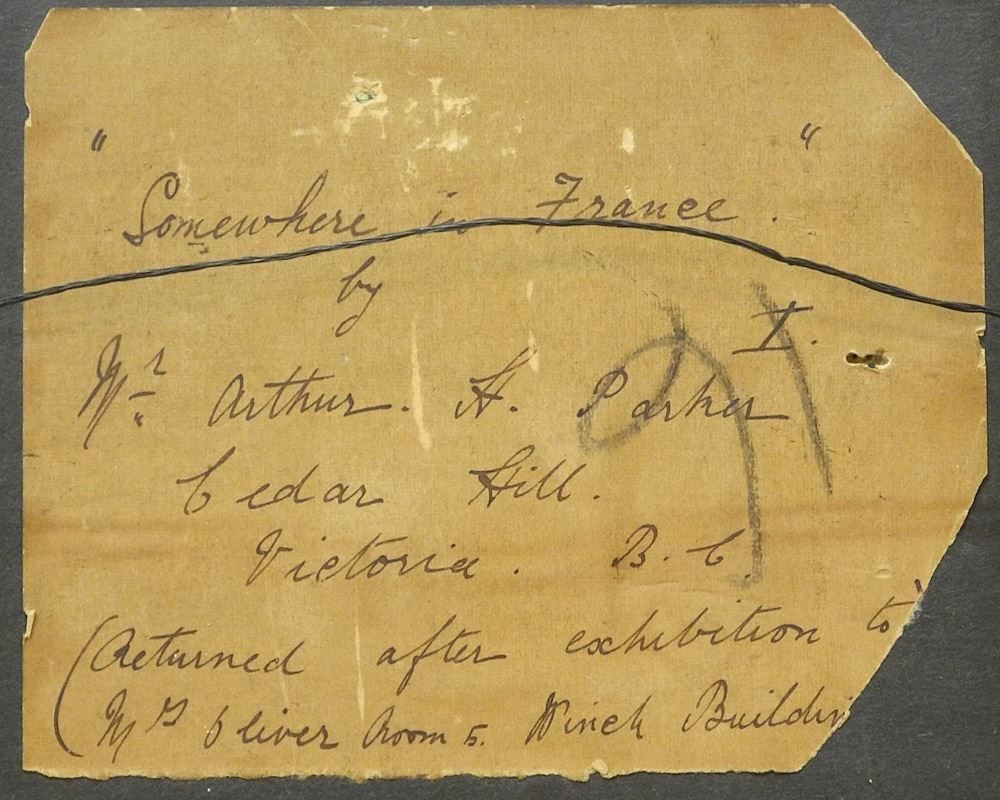 " "
Somewhere in France.
by
I.
Mr Arthur. H. Parker
Cedar Hill.
Victoria. B. C.
(Returned after exhibition to
Mrs Oliver Room 5. Winch Buildin